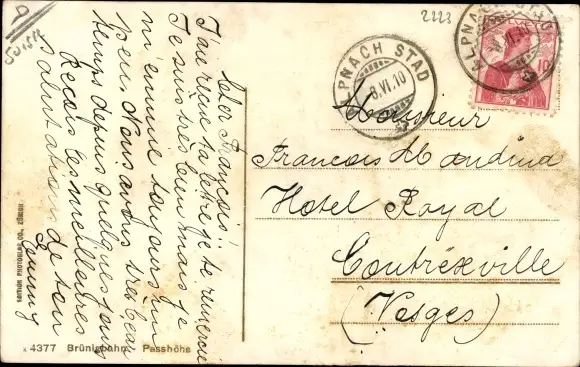 2223
Suisse
ALPNACH STAD
8.VI.10
10
Cher François!
J'ai reçue ta lettre je te remercie
Je suis très bien mais je
m'ennuie toujours un
peu. Nous avons très bear
temps depuis quelques jours
Reçois les meilleures
salutations de ton
Monsieur
Francois
Hotel Royal
Contréxeville
(Vosges)
EDITION PHOTOGLOB CO., ZÜRICH
4377 Brünigbahn. Passhöhe